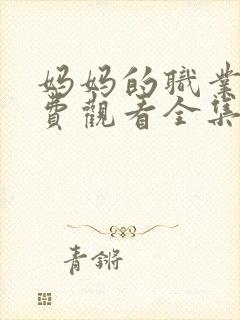 妈妈的職業
費觀看全集
青锵